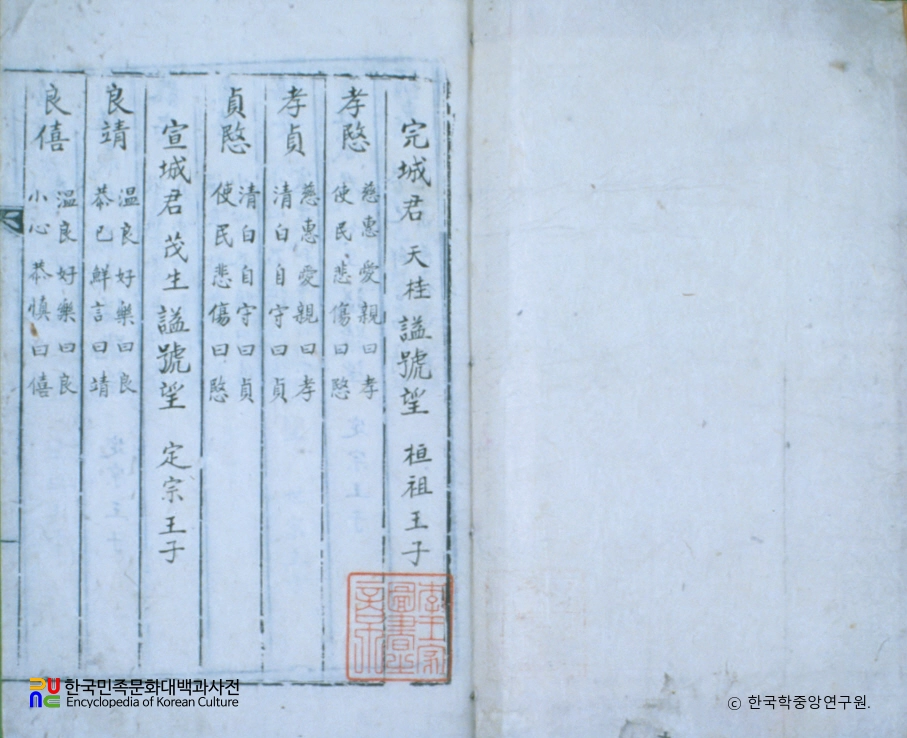 完城君 天桂 謚號望 桓祖王子
孝愍 慈惠愛親曰孝 使民悲傷曰愍
孝貞 慈惠愛親曰孝 清白自守曰貞
貞愍 清白自守曰貞 使民悲傷曰愍
宣城君 茂生 謚號望 定宗王子
良靖 温良好樂曰良 恭己鮮言曰靖
良僖 温良好樂曰良 小心恭慎曰僖
李王家
圖書
한국민족문화대백과사전
Encyclopedia of Korean Culture
ⓒ 한국학중앙연구원.